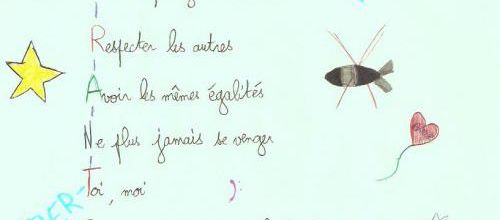 Respecter les autres
Avoir les mêmes égalités
Ne plus jamais se venger
Toi, moi ):